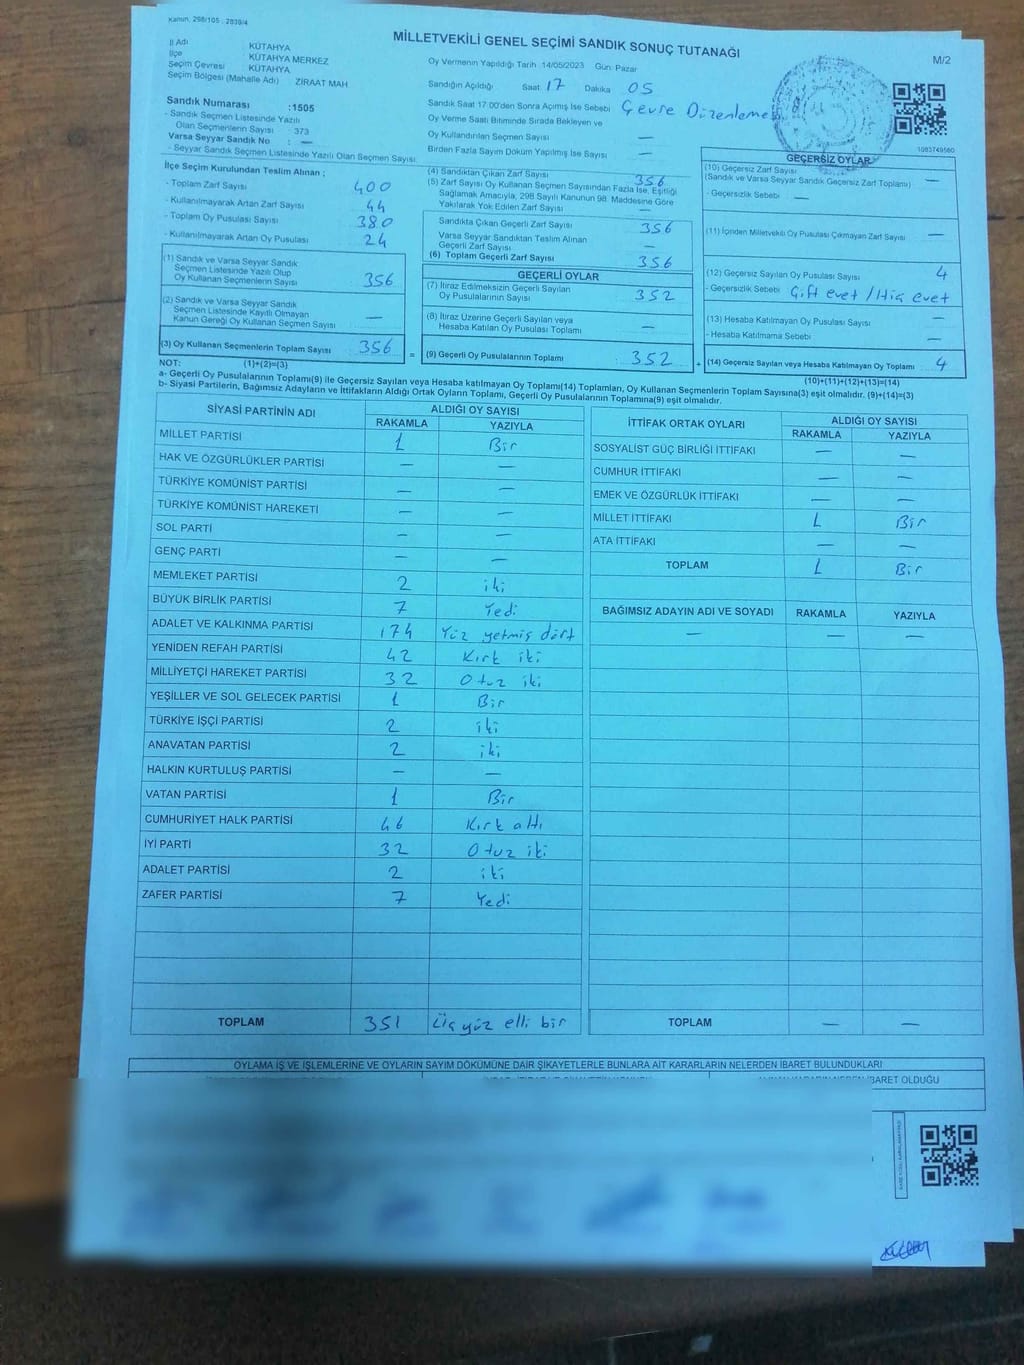 Kanun, 298/105 , 2839/4
MİLLETVEKİLİ GENEL SEÇİMİ SANDIK SONUÇ TUTANAĞI
M/2
İl Adı KÜTAHYA
İlçe KÜTAHYA MERKEZ
Seçim Çevresi KÜTAHYA
Seçim Bölgesi (Mahalle Adı) ZİRAAT MAH
Oy Vermenin Yapıldığı Tarih :14/05/2023 Gün: Pazar
Sandığın Açıldığı Saat 17 Dakika 05
Sandık Saat 17:00'den Sonra Açılmış İse Sebebi Çevre Düzenleme
Oy Verme Saati Bitiminde Sırada Bekleyen ve
Oy Kullandırılan Seçmen Sayısı —
Birden Fazla Sayım Döküm Yapılmış İse Sayısı —
1083749560
Sandık Numarası :1505
- Sandık Seçmen Listesinde Yazılı
Olan Seçmenlerin Sayısı : 373
Varsa Seyyar Sandık No : —
- Seyyar Sandık Seçmen Listesinde Yazılı Olan Seçmen Sayısı:
İlçe Seçim Kurulundan Teslim Alınan ;
- Toplam Zarf Sayısı 400
- Kullanılmayarak Artan Zarf Sayısı 44
- Toplam Oy Pusulası Sayısı 380
- Kullanılmayarak Artan Oy Pusulası 24
(1) Sandık ve Varsa Seyyar Sandık
Seçmen Listesinde Yazılı Olup
Oy Kullanan Seçmenlerin Sayısı 356
(2) Sandık ve Varsa Seyyar Sandık
Seçmen Listesinde Kayıtlı Olmayan
Kanun Gereği Oy Kullanan Seçmen Sayısı —
(3) Oy Kullanan Seçmenlerin Toplam Sayısı 356 =
(4) Sandıktan Çıkan Zarf Sayısı 356
(5) Zarf Sayısı Oy Kullanan Seçmen Sayısından Fazla İse, Eşitliği
Sağlamak Amacıyla, 298 Sayılı Kanunun 98. Maddesine Göre
Yakılarak Yok Edilen Zarf Sayısı —
Sandıkta Çıkan Geçerli Zarf Sayısı 356
Varsa Seyyar Sandıktan Teslim Alınan
Geçerli Zarf Sayısı —
(6) Toplam Geçerli Zarf Sayısı 356
GEÇERLİ OYLAR
(7) İtiraz Edilmeksizin Geçerli Sayılan
Oy Pusulalarının Sayısı 352
(8) İtiraz Üzerine Geçerli Sayılan veya
Hesaba Katılan Oy Pusulası Toplamı —
(9) Geçerli Oy Pusulalarının Toplamı 352 +
GEÇERSİZ OYLAR
(10) Geçersiz Zarf Sayısı
(Sandık ve Varsa Seyyar Sandık Geçersiz Zarf Toplamı) —
- Geçersizlik Sebebi —
(11) İçinden Milletvekili Oy Pusulası Çıkmayan Zarf Sayısı —
(12) Geçersiz Sayılan Oy Pusulası Sayısı 4
- Geçersizlik Sebebi Çift evet / Hiç evet
(13) Hesaba Katılmayan Oy Pusulası Sayısı —
- Hesaba Katılmama Sebebi —
(14) Geçersiz Sayılan veya Hesaba Katılmayan Oy Toplamı 4
NOT: (1)+(2)=(3) (10)+(11)+(12)+(13)=(14)
a- Geçerli Oy Pusulalarının Toplamı(9) ile Geçersiz Sayılan veya Hesaba katılmayan Oy Toplamı(14) Toplamları, Oy Kullanan Seçmenlerin Toplam Sayısına(3) eşit olmalıdır. (9)+(14)=(3)
b- Siyasi Partilerin, Bağımsız Adayların ve İttifakların Aldığı Ortak Oyların Toplamı, Geçerli Oy Pusulalarının Toplamına(9) eşit olmalıdır.
SİYASİ PARTİNİN ADI ALDIĞI OY SAYISI
RAKAMLA YAZIYLA
MİLLET PARTİSİ 1 Bir
HAK VE ÖZGÜRLÜKLER PARTİSİ — —
TÜRKİYE KOMÜNİST PARTİSİ — —
TÜRKİYE KOMÜNİST HAREKETİ — —
SOL PARTİ — —
GENÇ PARTİ — —
MEMLEKET PARTİSİ 2 iki
BÜYÜK BİRLİK PARTİSİ 7 Yedi
ADALET VE KALKINMA PARTİSİ 174 Yüz yetmiş dört
YENİDEN REFAH PARTİSİ 42 Kırk iki
MİLLİYETÇİ HAREKET PARTİSİ 32 Otuz iki
YEŞİLLER VE SOL GELECEK PARTİSİ 1 Bir
TÜRKİYE İŞÇİ PARTİSİ 2 iki
ANAVATAN PARTİSİ 2 iki
HALKIN KURTULUŞ PARTİSİ — —
VATAN PARTİSİ 1 Bir
CUMHURİYET HALK PARTİSİ 46 Kırk altı
İYİ PARTİ 32 Otuz iki
ADALET PARTİSİ 2 iki
ZAFER PARTİSİ 7 Yedi
TOPLAM 351 Üç yüz elli bir
İTTİFAK ORTAK OYLARI ALDIĞI OY SAYISI
RAKAMLA YAZIYLA
SOSYALİST GÜÇ BİRLİĞİ İTTİFAKI — —
CUMHUR İTTİFAKI — —
EMEK VE ÖZGÜRLÜK İTTİFAKI — —
MİLLET İTTİFAKI 1 Bir
ATA İTTİFAKI — —
TOPLAM 1 Bir
BAĞIMSIZ ADAYIN ADI VE SOYADI RAKAMLA YAZIYLA
— — —
TOPLAM — —
OYLAMA İŞ VE İŞLEMLERİNE VE OYLARIN SAYIM DÖKÜMÜNE DAİR ŞİKAYETLERLE BUNLARA AİT KARARLARIN NELERDEN İBARET BULUNDUKLARI
İBARET OLDUĞU